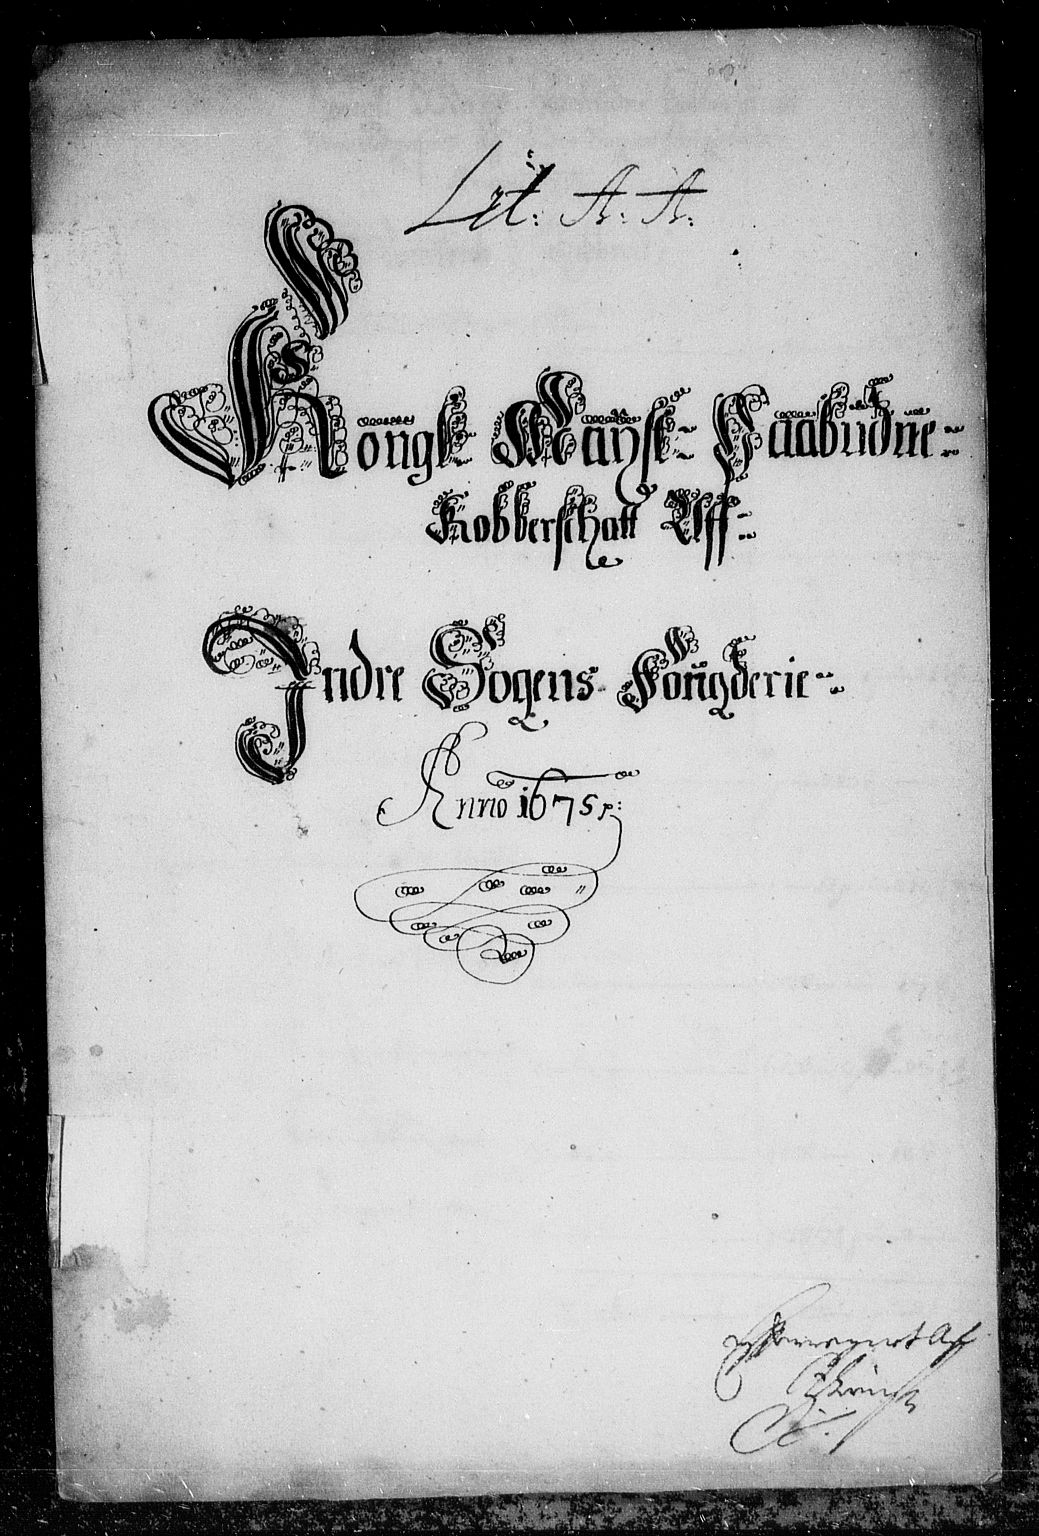 Lit: A: A:
Kongl: Mayst: Paabudne:
Kobberschatt Aff:
Indre Sogens Fougderie:
Anno 1675 p: